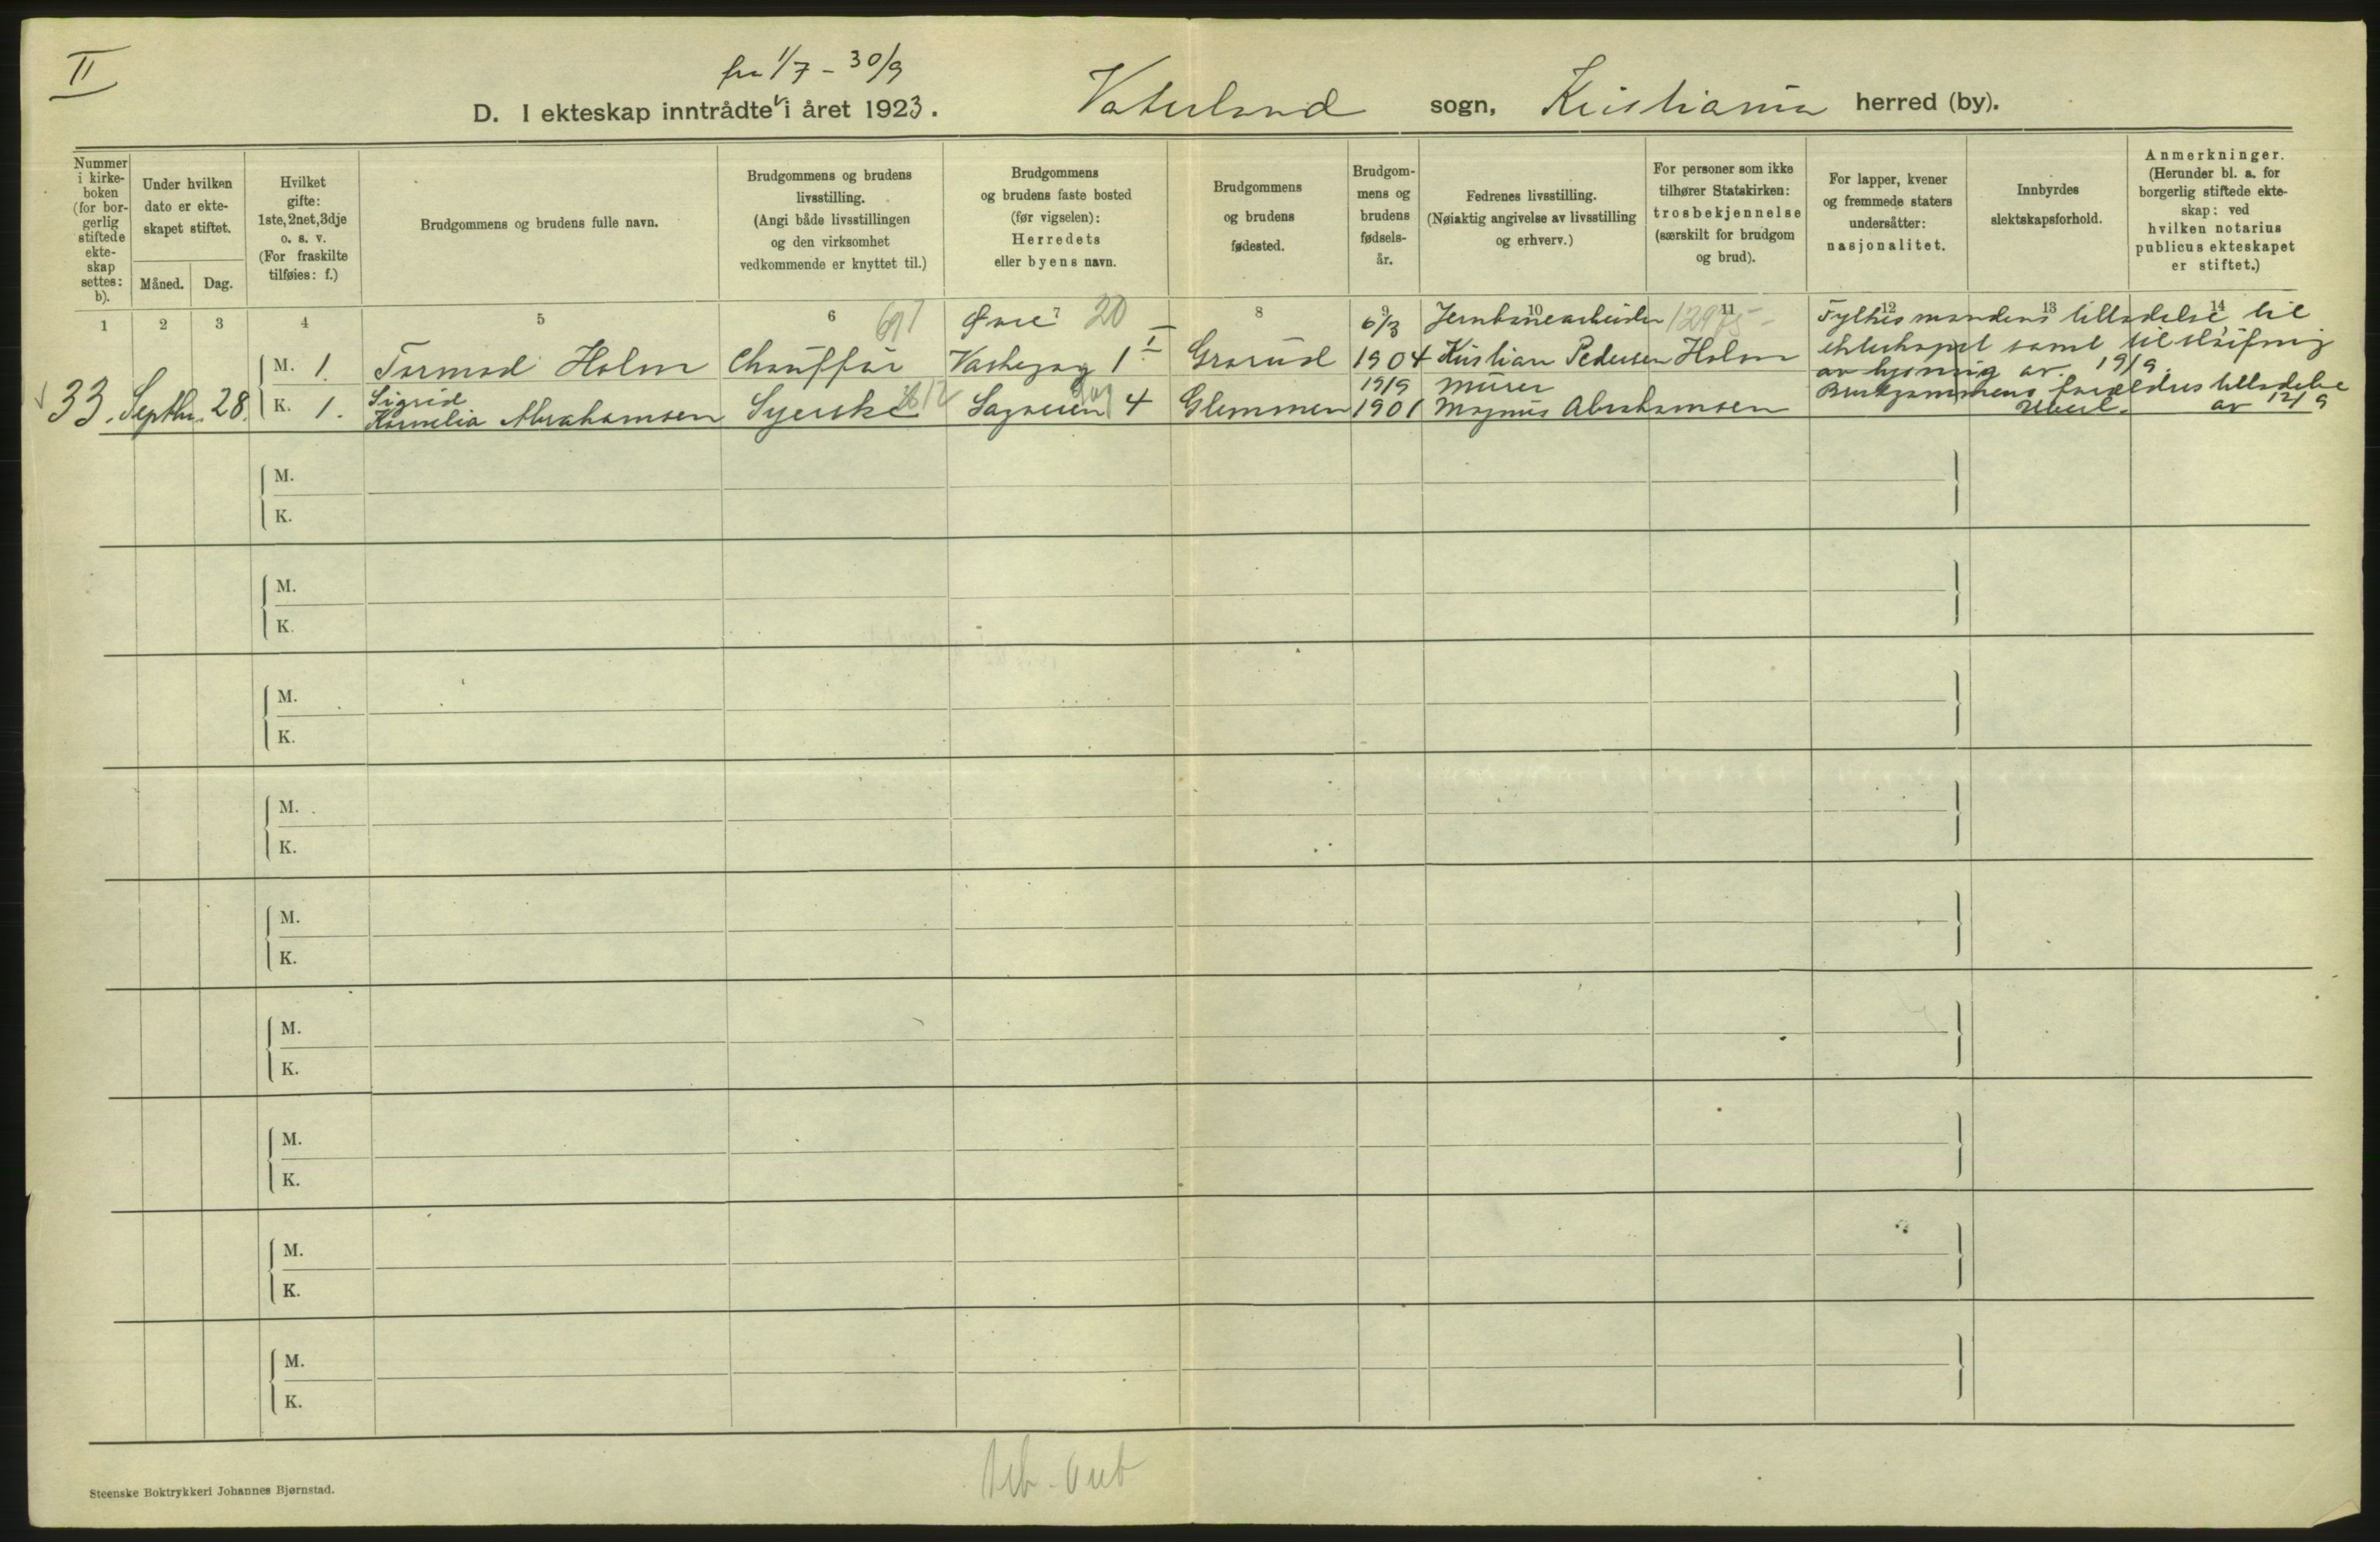 II
fra 1/7 - 30/9
D. I ekteskap inntrådte i året 1923. Vaterland sogn, Kristiania herred (by).
Nummer i kirke-boken (for bor-gerlig stiftede ekte-skap settes: b).
Under hvilken dato er ekte-skapet stiftet.
Måned. Dag.
Hvilket gifte: 1ste, 2net, 3dje o. s. v. (For fraskilte tilføies: f.)
Brudgommens og brudens fulle navn.
Brudgommens og brudens livsstilling. (Angi både livsstillingen og den virksomhet vedkommende er knyttet til.)
Brudgommens og brudens faste bosted (før vigselen): Herredets eller byens navn.
Brudgommens og brudens fødested.
Brudgom-mens og brudens fødsels-år.
Fedrenes livsstilling. (Nøiaktig angivelse av livsstilling og erhverv.)
For personer som ikke tilhører Statskirken: trosbekjennelse (særskilt for brudgom og brud).
For lapper, kvener og fremmede staters undersåtter: nasjonalitet.
Innbyrdes slektskapsforhold.
Anmerkninger. (Herunder bl. a. for borgerlig stiftede ekte-skap: ved hvilken notarius publicus ekteskapet er stiftet.)
1 2 3 4 5 6 7 8 9 10 11 12 13 14
691 Øvre 20 6/3 Jernbanearbeider Fylkesmandens tilladelse til
M. 1. Tormod Holm Chauffør Vaskegang 1 I Grorud 1904 Kristian Pedersen Holm ekteskapet samt til
av lysning av 19/9.
33. Septbr. 28. K. 1. Sigrid Syerske Sagveien 4 Glemmen 19/9 Murer Brudgommens forældres tilladelse
Kornelia Abrahamsen 1901 Magnus Abrahamsen Ubesl. av 12/9
M.
K.
M.
K.
M.
K.
M.
K.
M.
K.
M.
K.
M.
K.
M.
K.
M.
K.
Steenske Boktrykkeri Johannes Bjørnstad.